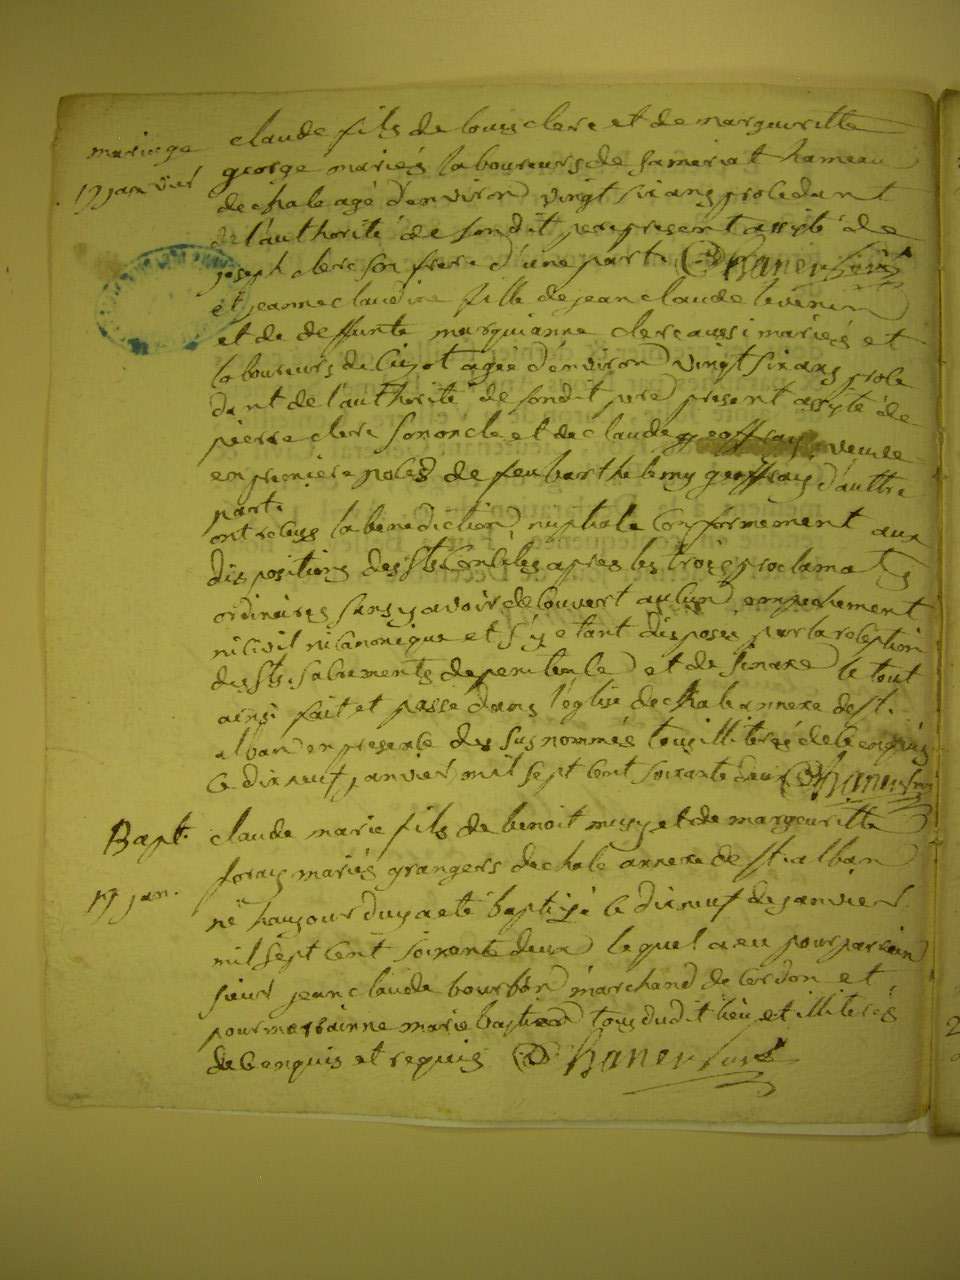 mariage
19 janvier
claude fils de louis clerc et de margueritte
george mariés laboureurs de hameau
de chale agé d'environ vingt six ans procedant
de l'authorité de son dit pere present assysté de
joseph clerc son frere d'une parte
et jeanne claudine fille de jean claude
et de deffunte marquianne clerc aussi mariés et
laboureurs de agée d'environ vingt six ans proce
dant de l'authorité de son dit pere present assysté de
pierre clerc son oncle et de claude geoffray veuve
en premiere noces de feu barthelemy geoffray d'auttre
parte
ont recus la benediction nuptiale conformement aux
dispositions des sts conciles apres les trois proclama
ordinaires sans y avoir decouvert aucun empechement
ni civil ni canonique et s'y etant disposés par la reception
des sts sacrements de penitence et de le tout
ainsi fait et passé dans l'église de chale annexe de st.
alban en presence des susnommés tous illiterés de ce enquis
ce dix neuf janvier mil sept cent soixante deux
Bapt.
19 jan.
claude marie fils de benoit musy et de margueritte
foray mariés grangers de chale annexe de st alban
né haujourduy a eté baptisé le dix neuf de janvier
mil sept cent soixante deux lequel a eu pour parrain
sieur jean claude bourbon marchand de cerdon et
pour marrainne marie tous dudit lieu et illiterés
de ce enquis et requis